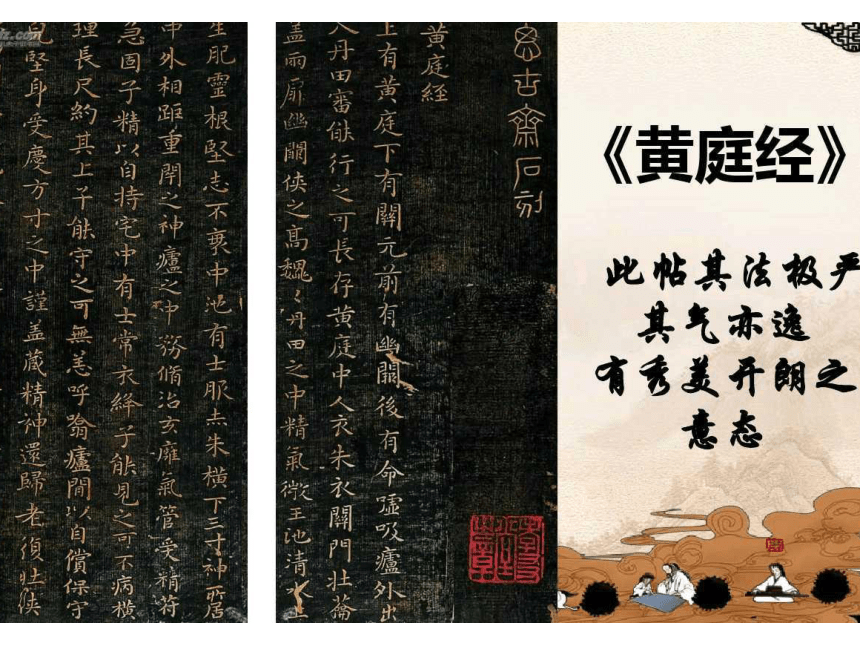 《黄庭经》
此帖其法极严
其气亦逸
有秀美开朗之
意态
思古齋石刻
黄庭經
上有黄庭下有關元前有幽闕後有命噓吸廬外出
入丹田審能行之可長存黄庭中人衣朱衣關門壯蘥
盖兩扉幽闕俠之髙魏〻丹田之中精氣微王池清水上
生肥靈根堅志不衰中池有士服赤朱横下三寸神所居
中外相距重閇之神廬之中務脩治玄癰氣管受精符
急固子精以自持宅中有士常衣絳子能見之可不病横
理長尺約其上子能守之可無恙呼噏廬間以自償保守
皃堅身受慶方寸之中謹盖蔵精神還歸老復壯俠